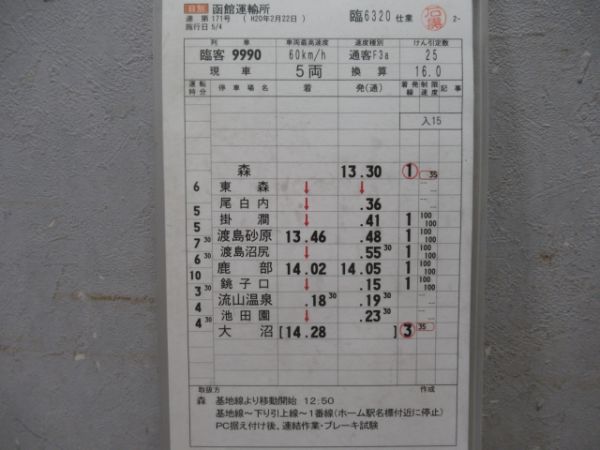 函館運輸所
達 第171号 ( H20年2月22日 ) 臨6320 仕業 2-
施行日 5/4
列車 車両最高速度 速度種別 けん引定数
臨客 9990 60km/h 通客F3a 25
現車 5両 換算 16.0
運転時分 停車場名 着 発(通) 着発線 制限速度 記事
入15
森 13.30 1 35
6 東森 ↓ ↓
尾白内 ↓ .36
5 掛澗 ↓ .41 1 100 100
5 渡島砂原 13.46 .48 1 100 100
7 30 渡島沼尻 ↓ .55 30 1 100 100
6 30 鹿部 14.02 14.05 1 100 100
10 銚子口 ↓ .15 1 100 100
3 30 流山温泉 .18 30 .19 30
4 池田園 ↓ .23 30
4 30 大沼 [14.28 ] 3 35
取扱方 作成
森 基地線より移動開始 12:50
基地線～下り引上線～1番線(ホーム駅名標付近に停止)
PC据え付け後、連結作業・ブレーキ試験